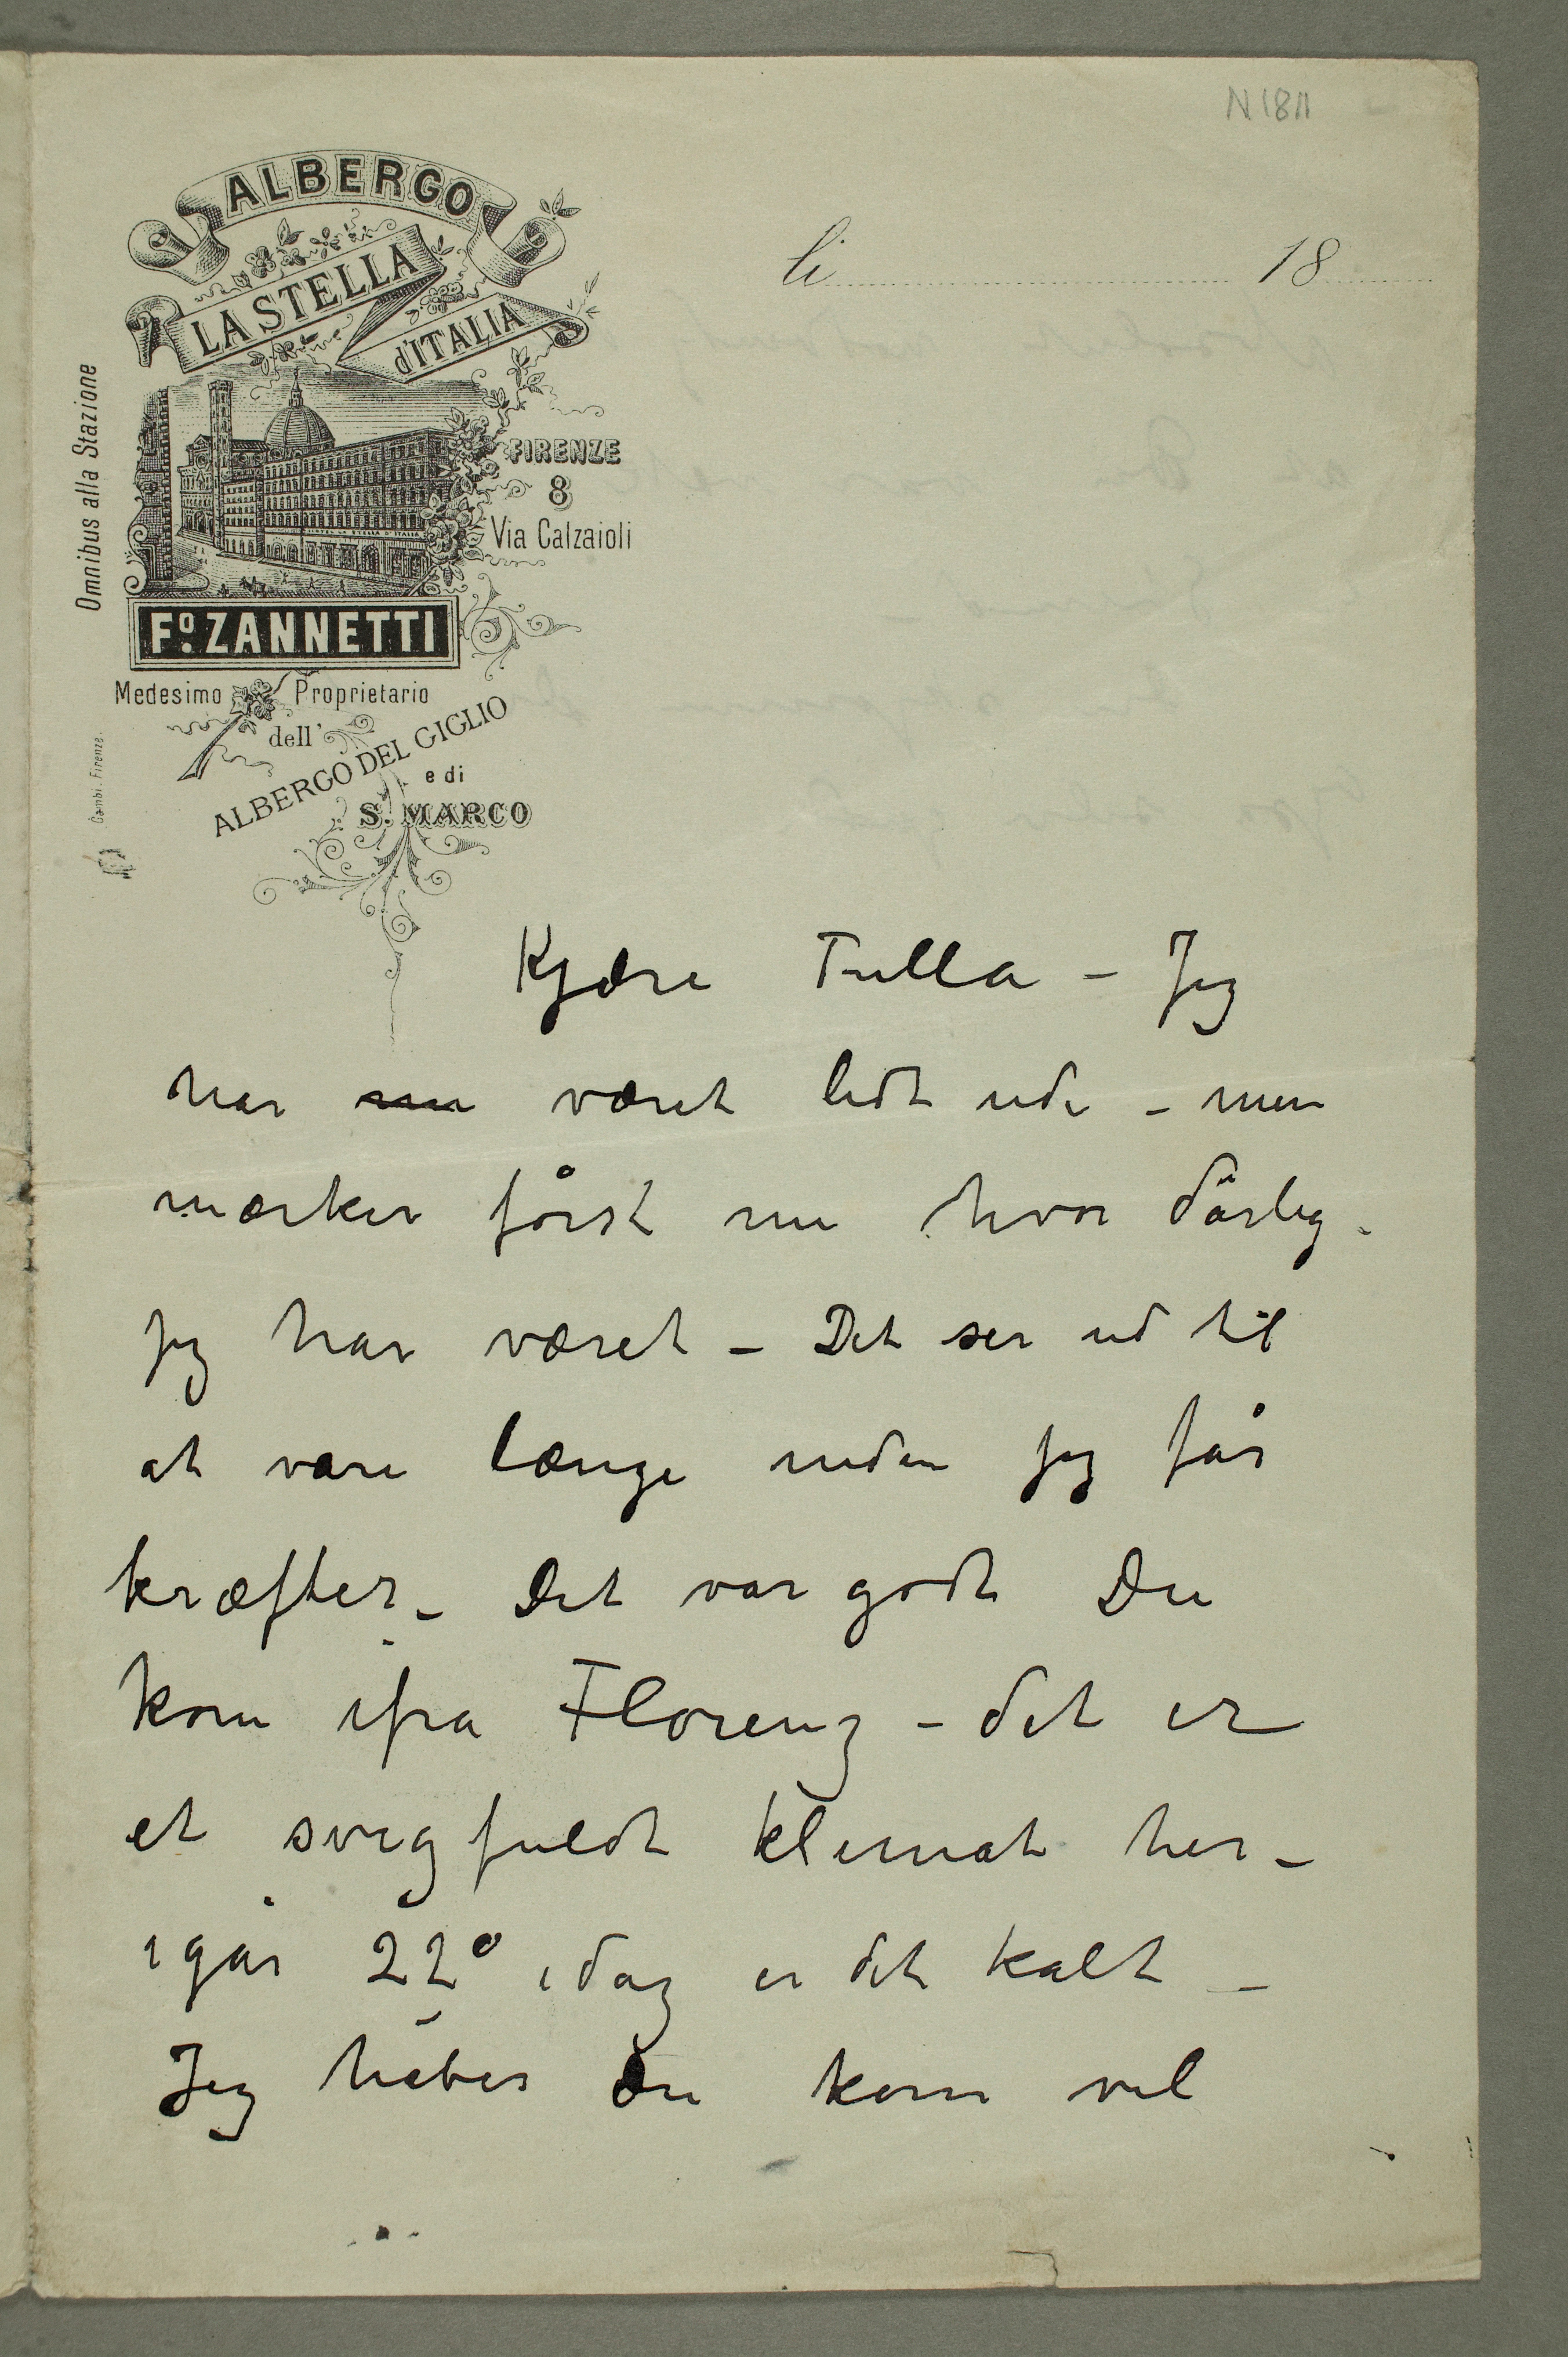 N 1811
ALBERGO
LA STELLA
d'ITALIA
li 18
Omnibus alla Stazione
FIRENZE
8
Via Calzaioli
Fo. ZANNETTI
Medesimo Proprietario
dell'
ALBERGO DEL GIGLIO
e di
S. MARCO
Gambi. Firenze.
Kjære Tulla – Jeg
har nu været lidt ude – men
mærker først nu hvor dårlig
jeg har været – Det ser ud til
at vare længe inden jeg får
kræfter – Det var godt Du
kom ifra Florenz – det er
et svigfuldt klimat her –
igår 22° idag er det kalt –
Jeg håber Du kom vel